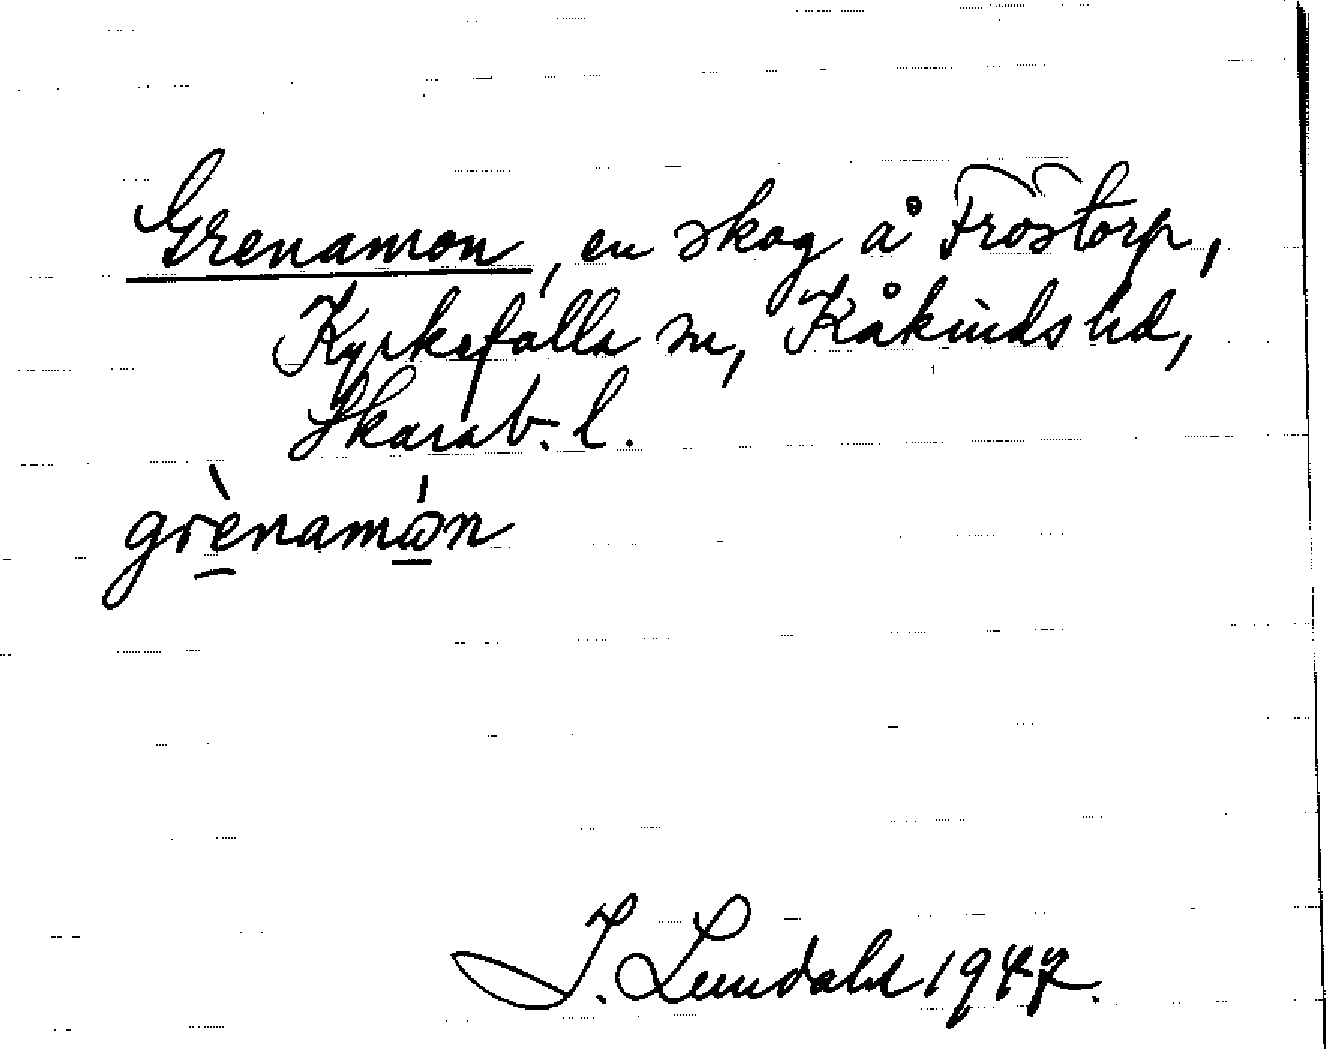 Grenamon, en skog å Frostorp,
Kyrkefalla sn, Kåkinds hd,
Skarab. l.
grènamón
I. Lundahl 1947.